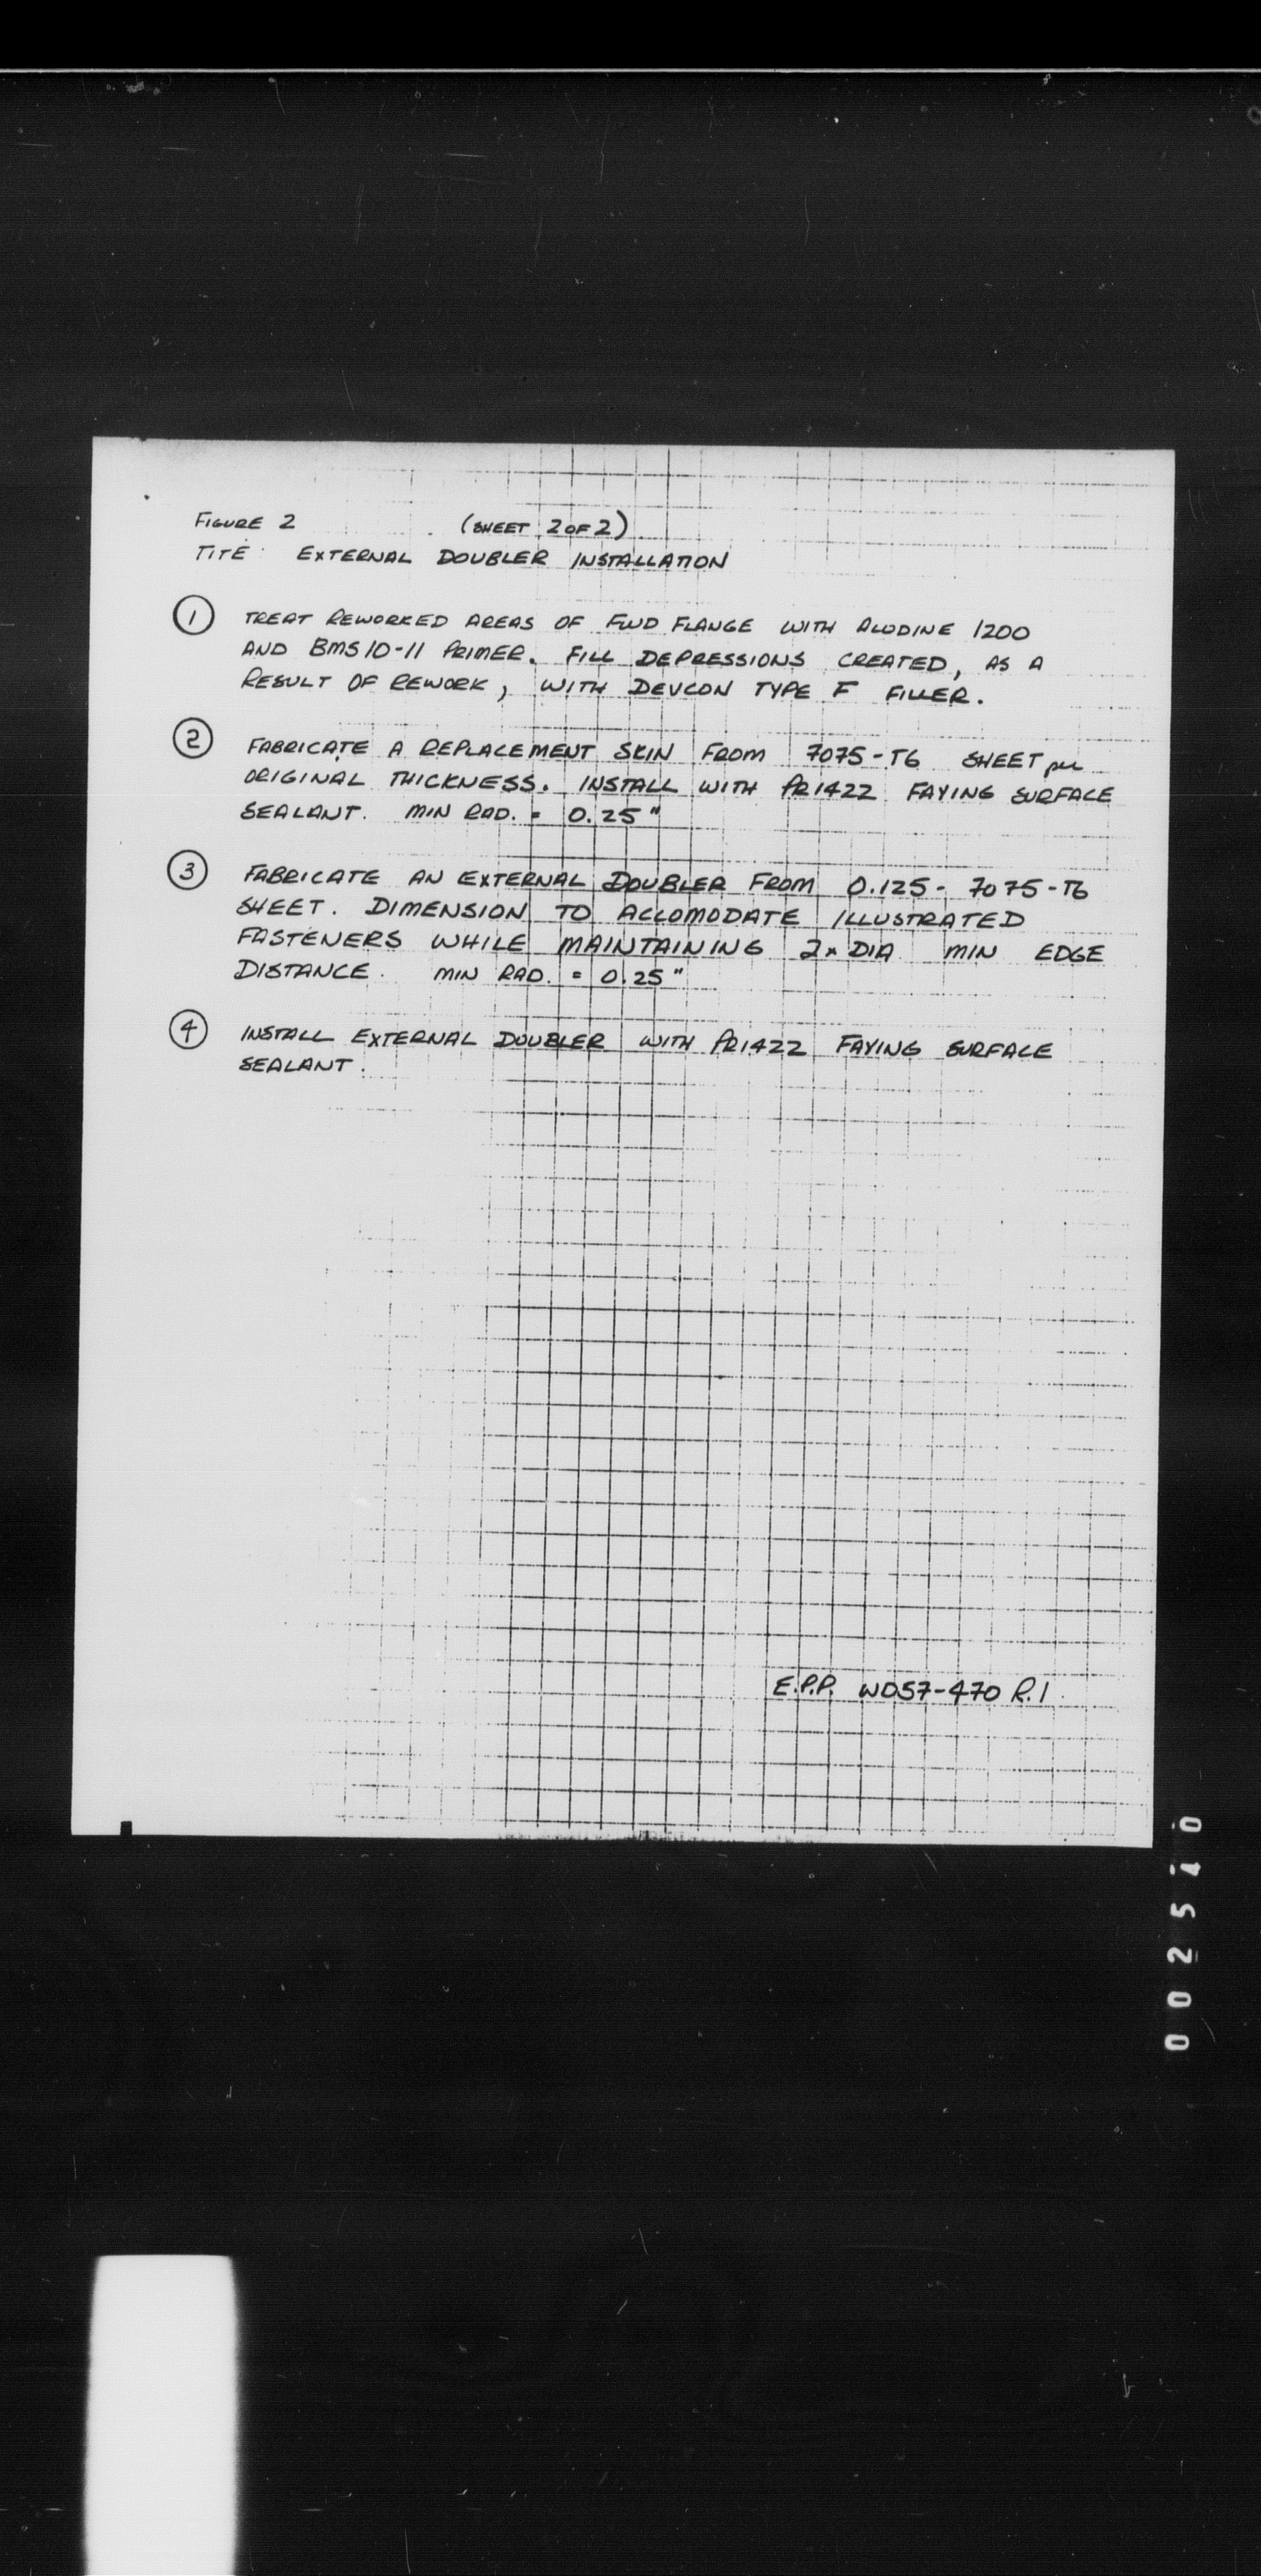 FIGURE 2 (SHEET 2 OF 2)
TITE: EXTERNAL DOUBLER INSTALLATION
1 TREAT REWORKED AREAS OF FWD FLANGE WITH ALODINE 1200
AND BMS 10-11 PRIMER. FILL DEPRESSIONS CREATED, AS A
RESULT OF REWORK, WITH DEVCON TYPE F FILLER.
2 FABRICATE A REPLACEMENT SKIN FROM 7075-T6 SHEET per
ORIGINAL THICKNESS. INSTALL WITH PR1422 FAYING SURFACE
SEALANT. MIN RAD. = 0.25"
3 FABRICATE AN EXTERNAL DOUBLER FROM 0.125- 7075-T6
SHEET. DIMENSION TO ACCOMODATE ILLUSTRATED
FASTENERS WHILE MAINTAINING 2x DIA MIN EDGE
DISTANCE. MIN RAD. = 0.25"
4 INSTALL EXTERNAL DOUBLER WITH PR1422 FAYING SURFACE
SEALANT.
E.P.P. WD57-470 R.1
002540